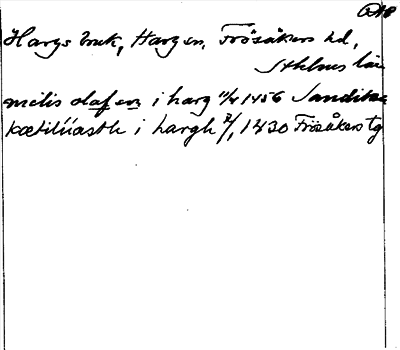 Hargs bruk, Hargs sn, Frösåkers hd,
Sthlms län
nielis olafson i harg 11/4 1456 Sandika
kætilüasth i hargh 7/1 1430 Frösåkers tg